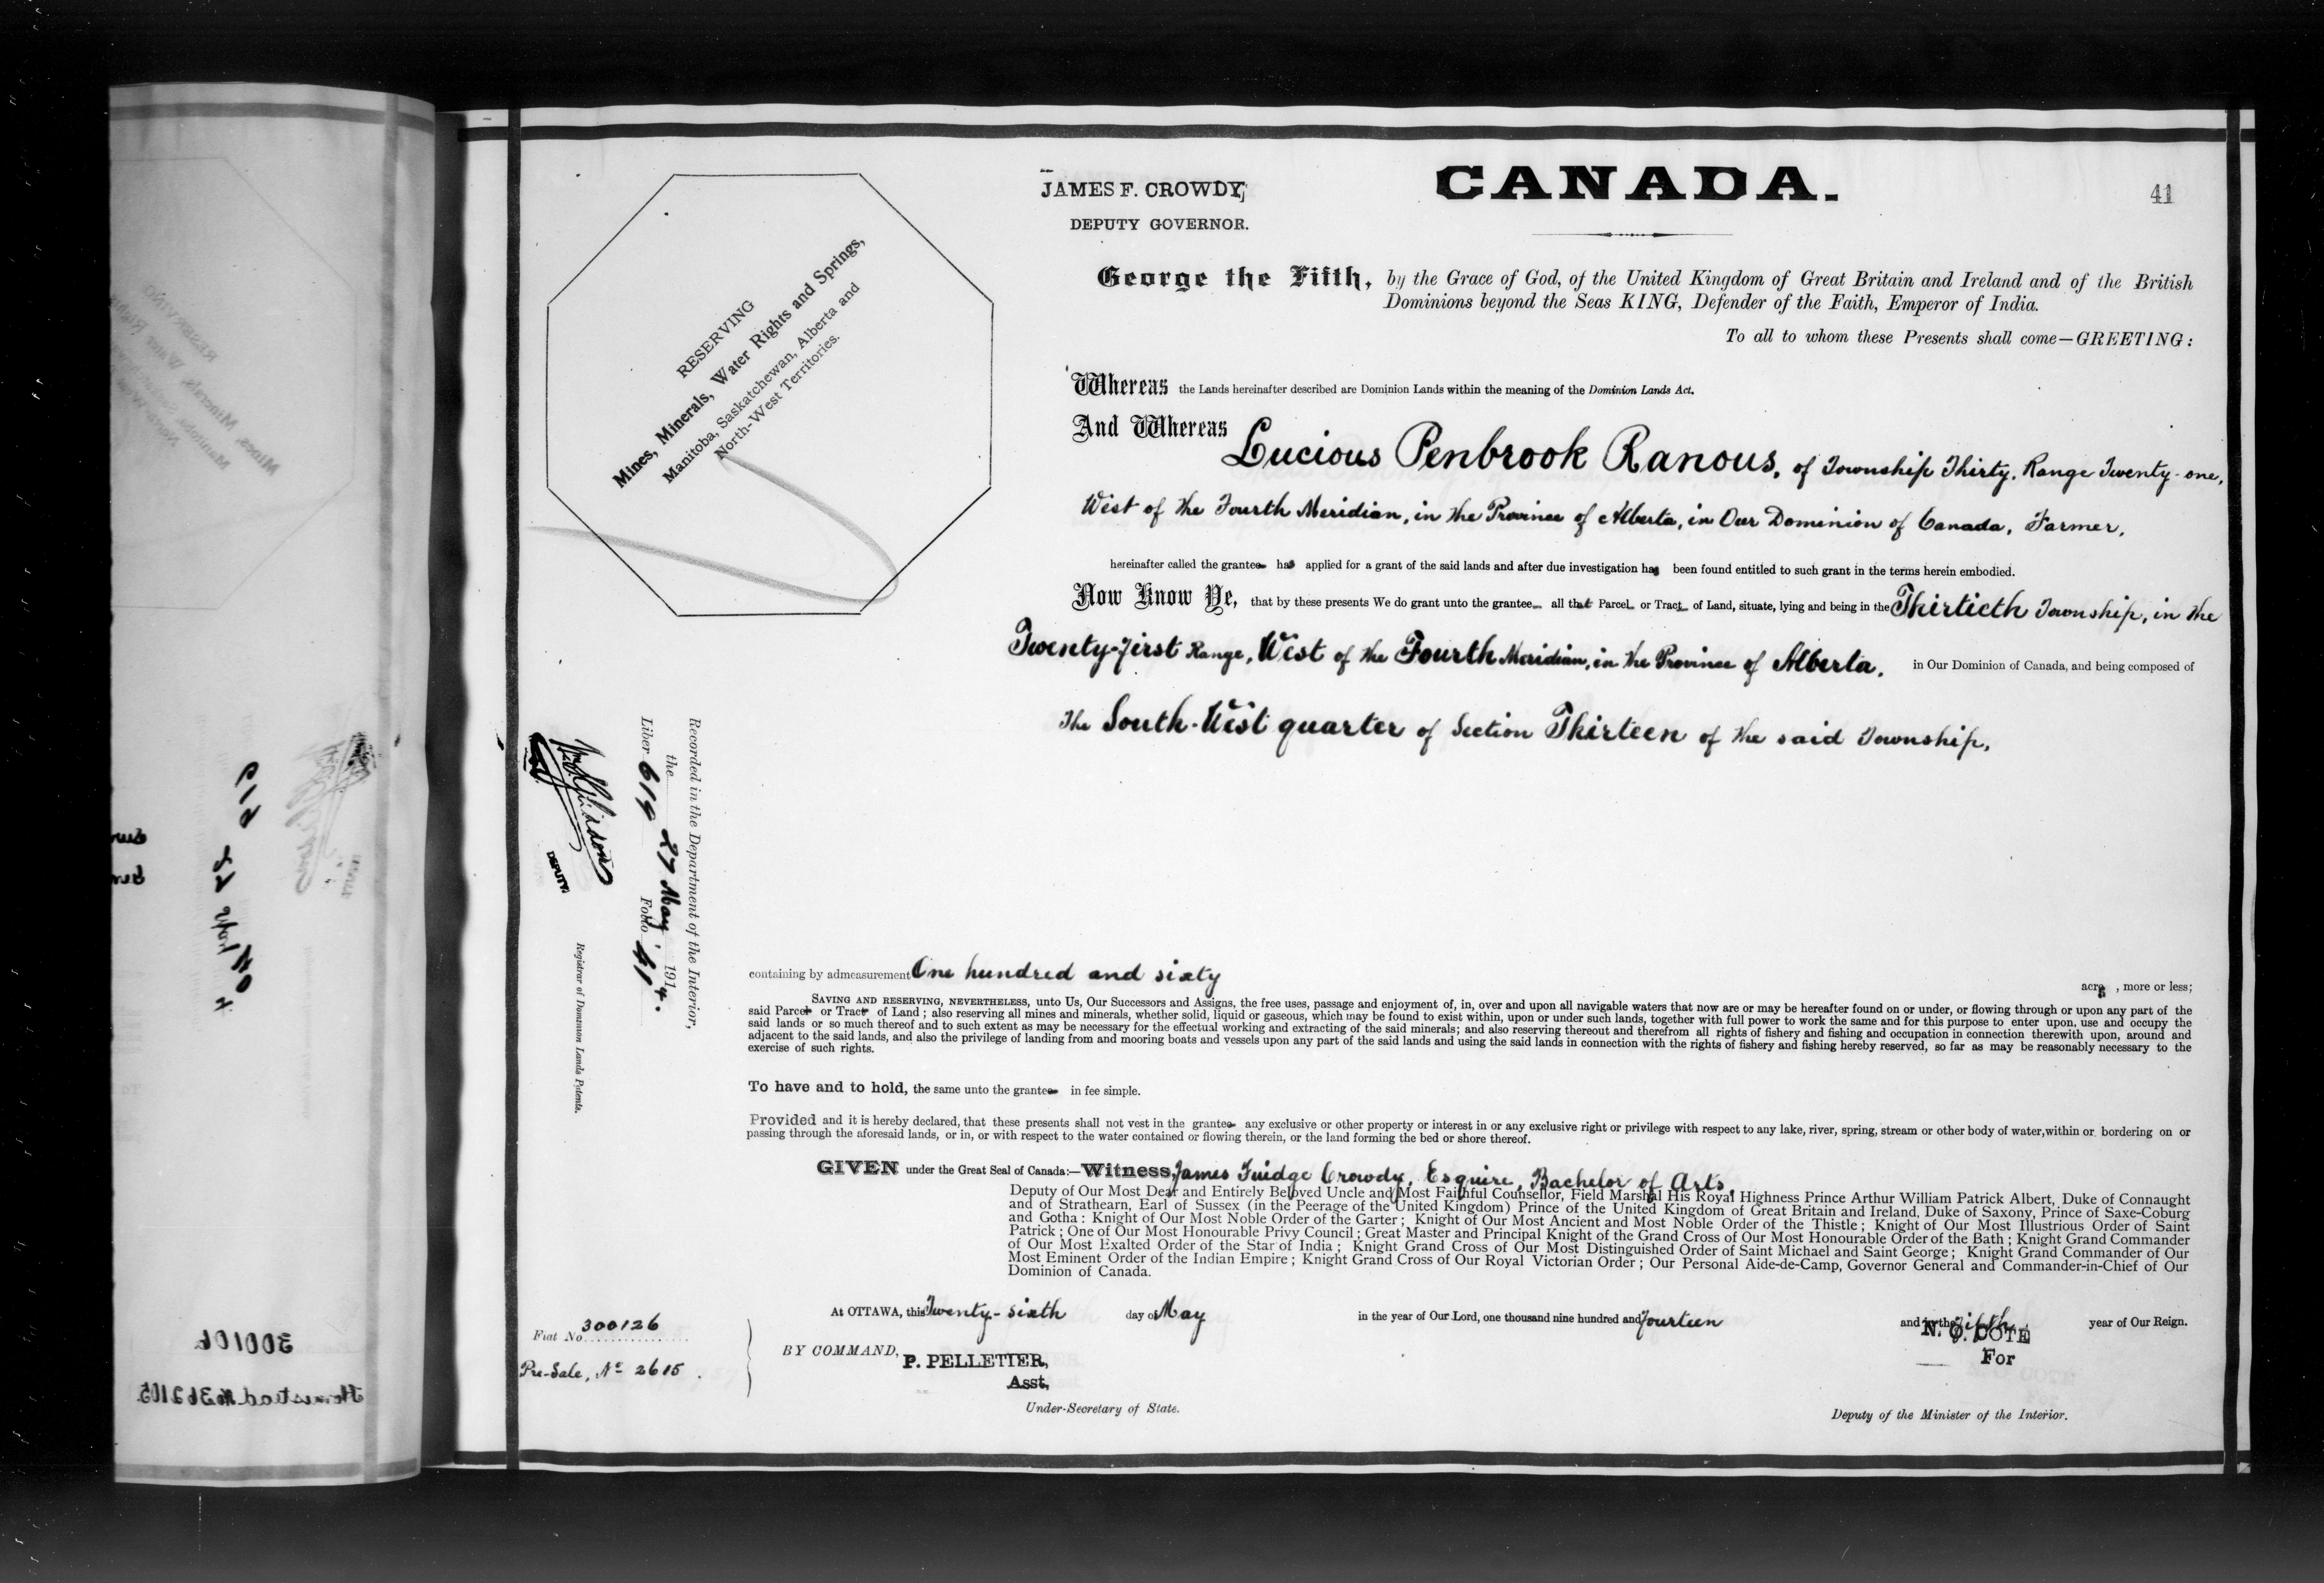 JAMES F. CROWDY,
DEPUTY GOVERNOR.
CANADA.
41
RESERVING
Mines, Minerals, Water Rights and Springs,
Manitoba, Saskatchewan, Alberta and
North-West Territories.
George the Fifth, by the Grace of God, of the United Kingdom of Great Britain and Ireland and of the British
Dominions beyond the Seas KING, Defender of the Faith, Emperor of India.
To all to whom these Presents shall come—GREETING:
Whereas the Lands hereinafter described are Dominion Lands within the meaning of the Dominion Lands Act.
And Whereas Lucious Penbrook Ranous, of Township Thirty, Range Twenty-one,
West of the Fourth Meridian, in the Province of Alberta, in Our Dominion of Canada, Farmer,
hereinafter called the grantee has applied for a grant of the said lands and after due investigation has been found entitled to such grant in the terms herein embodied.
Now Know Ye, that by these presents We do grant unto the grantee all that Parcel or Tract of Land, situate, lying and being in the Thirtieth Township, in the
Twenty-first Range, West of the Fourth Meridian, in the Province of Alberta, in Our Dominion of Canada, and being composed of
The South-West quarter of Section Thirteen of the said Township,
Recorded in the Department of the Interior,
the 27 May 1914.
Liber 619 Folio 41
DEPUTY
Registrar of Dominion Lands Patents.
containing by admeasurement One hundred and sixty acres, more or less;
SAVING AND RESERVING, NEVERTHELESS, unto Us, Our Successors and Assigns, the free uses, passage and enjoyment of, in, over and upon all navigable waters that now are or may be hereafter found on or under, or flowing through or upon any part of the
said Parcel or Tract of Land; also reserving all mines and minerals, whether solid, liquid or gaseous, which may be found to exist within, upon or under such lands, together with full power to work the same and for this purpose to enter upon, use and occupy the
said lands or so much thereof and to such extent as may be necessary for the effectual working and extracting of the said minerals; and also reserving thereout and therefrom all rights of fishery and fishing and occupation in connection therewith upon, around and
adjacent to the said lands, and also the privilege of landing from and mooring boats and vessels upon any part of the said lands and using the said lands in connection with the rights of fishery and fishing hereby reserved, so far as may be reasonably necessary to the
exercise of such rights.
To have and to hold, the same unto the grantee in fee simple.
Provided and it is hereby declared, that these presents shall not vest in the grantee any exclusive or other property or interest in or any exclusive right or privilege with respect to any lake, river, spring, stream or other body of water, within or bordering on or
passing through the aforesaid lands, or in, or with respect to the water contained or flowing therein, or the land forming the bed or shore thereof.
GIVEN under the Great Seal of Canada:—Witness, James Fuidge Crowdy, Esquire, Bachelor of Arts,
Deputy of Our Most Dear and Entirely Beloved Uncle and Most Faithful Counsellor, Field Marshal His Royal Highness Prince Arthur William Patrick Albert, Duke of Connaught
and of Strathearn, Earl of Sussex (in the Peerage of the United Kingdom) Prince of the United Kingdom of Great Britain and Ireland, Duke of Saxony, Prince of Saxe-Coburg
and Gotha: Knight of Our Most Noble Order of the Garter; Knight of Our Most Ancient and Most Noble Order of the Thistle; Knight of Our Most Illustrious Order of Saint
Patrick; One of Our Most Honourable Privy Council; Great Master and Principal Knight of the Grand Cross of Our Most Honourable Order of the Bath; Knight Grand Commander
of Our Most Exalted Order of the Star of India; Knight Grand Cross of Our Most Distinguished Order of Saint Michael and Saint George; Knight Grand Commander of Our
Most Eminent Order of the Indian Empire; Knight Grand Cross of Our Royal Victorian Order; Our Personal Aide-de-Camp, Governor General and Commander-in-Chief of Our
Dominion of Canada.
At OTTAWA, this Twenty-sixth day of May in the year of Our Lord, one thousand nine hundred and fourteen and in the fifth year of Our Reign.
Fiat No. 300126
Pre-Sale, No 2615.
BY COMMAND,
P. PELLETIER,
Asst,
Under-Secretary of State.
N. O. COTE
For
Deputy of the Minister of the Interior.